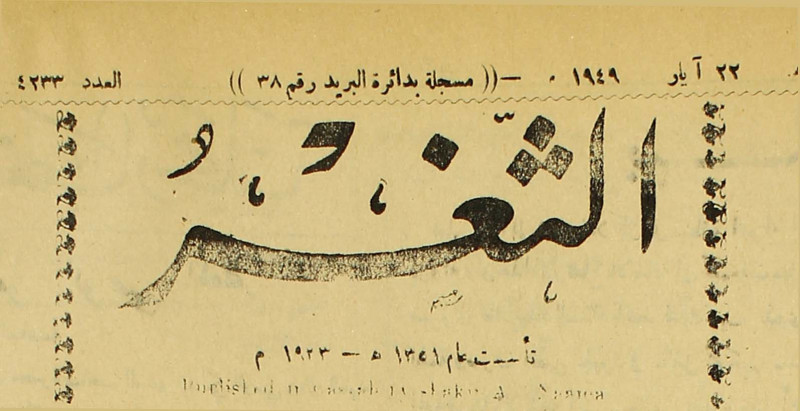 ٢٢ آيار ١٩٤٩ . —(( مسجلة بدائرة البريد رقم ٣٨ )) العدد ٤٢٣٣
الثغر
تأسست عام ١٣٤١ ه — ١٩٢٣ م
Published